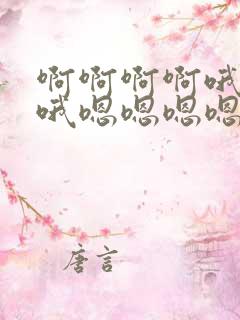 啊啊啊啊哦
哦嗯嗯嗯嗯
唐言